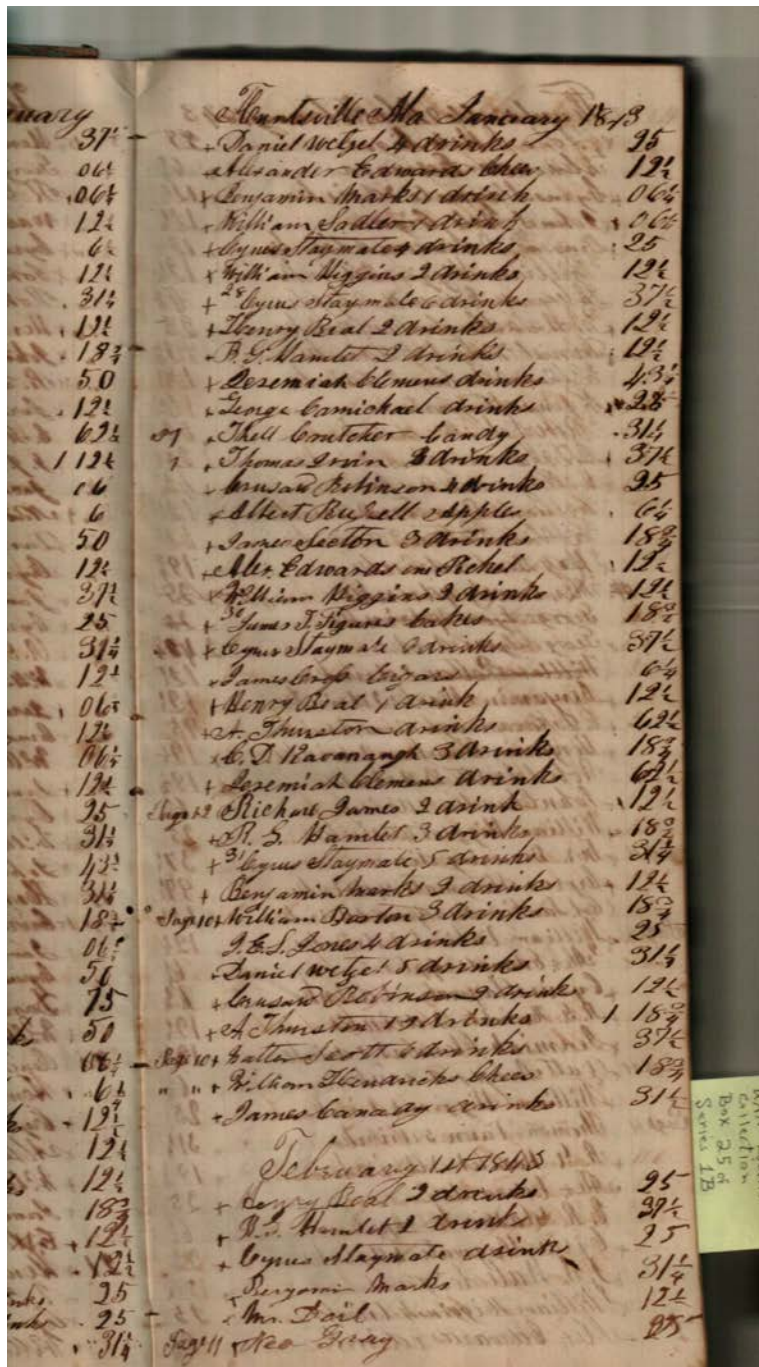 nuary
37½
06¼
06¼
12½
6¼
12½
31¼
12½
18¾
50
12½
62½
1 12½
06
6
50
12½
37½
25
31¼
12½
06¼
12½
06¼
12½
25
31¼
43¾
31¼
18¾
06¼
50
75
50
06¼
6¼
12½
12½
12½
18¾
12½
12½
25
25
31¼
Huntsville Ala January 1843
+ Daniel Wetzel 4 drinks 25
+ Alexander Edwards Chees 12½
+ Benjamin Marks 1 drink 06¼
+ William Sadler 1 drink 06¼
+ Cyrus Staymate 4 drinks 25
+ William Higgins 2 drinks 12½
+ 28 Cyrus Staymate 6 drinks 37½
+ Henry Beal 2 drinks 12½
Hamlet 2 drinks 12½
+ Jeremiah Clemens drinks 43¾
+ George Camichael drinks 25
+ Thell Crutcher Candy 31¼
+ Thomas Irvin drinks 37½
+ Crusaw Robinson 4 drinks 25
+ Albert Russell Apples 6¼
+ James Seetton 3 drinks 18¾
+ Alex. Edwards one Pickel 12½
+ William Higgins 2 drinks 12½
+ 30 James T. Figures Cakes 18¾
+ Cyrus Staymate 6 drinks 37½
+ James Cigars 6¼
+ Henry Beal 1 drink 12½
+ A. Thurston drinks 62½
+ C. D. Kavanaugh 3 drinks 18¾
+ Jeremiah Clemens drinks 62½
Page 12 Richard James 2 drink 12½
+ Hamlet 3 drinks 18¾
+ 31 Cyrus Staymate 5 drinks 31¼
+ Benjamin Marks 2 drinks 12½
Page 10 + William Barton 3 drinks 18¾
Jones 4 drinks 25
+ Daniel Wetzel 5 drinks 31¼
+ Crusaw Robinson 2 drink 12½
+ A Thurston 19 drinks 1 18¾
Page 10 + Walter Scott 6 drinks 37½
" " + William Hendricks Chees 18¾
+ James Canady drinks 31¼
February 1st 1843
+ Henry Beal 2 drinks 25
+ Hamlet drinks 37½
+ Cyrus Staymate drink 25
+ Benjamin Marks 31¼
+ Mr. Dail 12½
Page 11 + Neo Gray 25
collection
Box 252
Series 1B